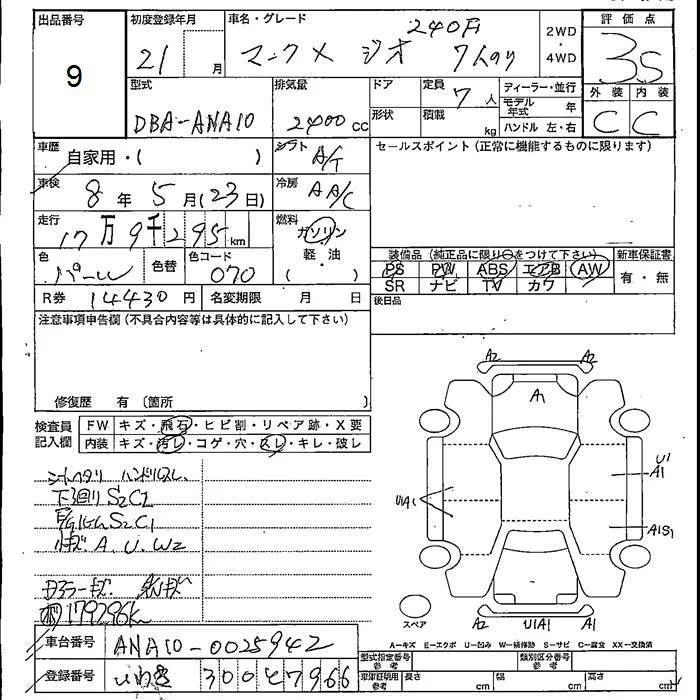 出品番号 初度登録年月 車名・グレード 2WD・4WD 評価点
9 21 月 マークX ジオ 240F 7人のり 3.5
外装 内装
C C
型式 排気量 ドア 定員 7人 ディーラー・並行
DBA-ANA10 2400cc 形状 積載 kg モデル年式 年
ハンドル 左・右
車歴 自家用・( ) シフト A/T セールスポイント(正常に機能するものに限ります)
車検 8年5月(23日) 冷房 AA/C
走行 17万9千295km 燃料 ガソリン
軽・油
( )
色 パール 色替 色コード 070
装備品(純正品に限り○をつけて下さい) 新車保証書
PS PW ABS エアB AW 有・無
SR ナビ TV カワ
R券 14430円 名変期限 月 日 後日品
注意事項申告欄(不具合内容等は具体的に記入して下さい)
修復歴 有(箇所 )
検査員記入欄 FW キズ・飛石・ヒビ割・リペア跡・X要
内装 キズ・汚レ・コゲ・穴・スレ・キレ・破レ
シートヘタリ ハンドルスレ
下廻りS2C2
S2C1
小キズ A.U.W2
179296km
A2 A2
A1
U1
A1
U1A1
A1S1
スペア A2 U1A1 A1
A-キズ E-エクボ U-凹み W-補修跡 S-サビ C-腐食 XX-交換済
車台番号 ANA10-0025942
登録番号 いわき 300 7966
型式指定番号 参考 類別区分番号 参考
車庫証明用 参考 長さ cm 幅 cm 高さ cm